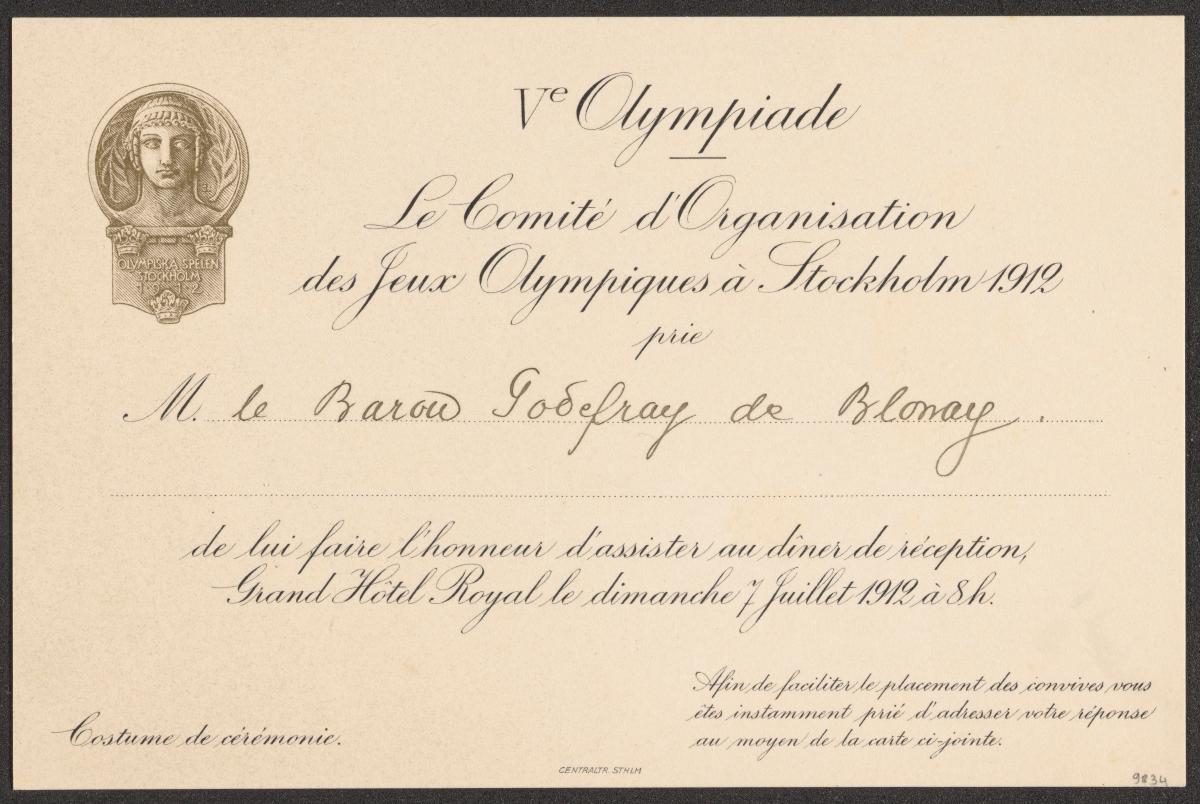 Ve Olympiade
Le Comité d'Organisation
des Jeux Olympiques à Stockholm 1912
prie
M. le Baron Godefray de Blonay.
de lui faire l'honneur d'assister au dîner de réception,
Grand Hôtel Royal le dimanche 7 Juillet 1912 à 8 h.
Afin de faciliter le placement des convives vous
êtes instamment prié d'adresser votre réponse
au moyen de la carte ci-jointe.
Costume de cérémonie.
OLYMPISKA SPELEN
STOCKHOLM
1912
CENTRALTR. STHLM
9834